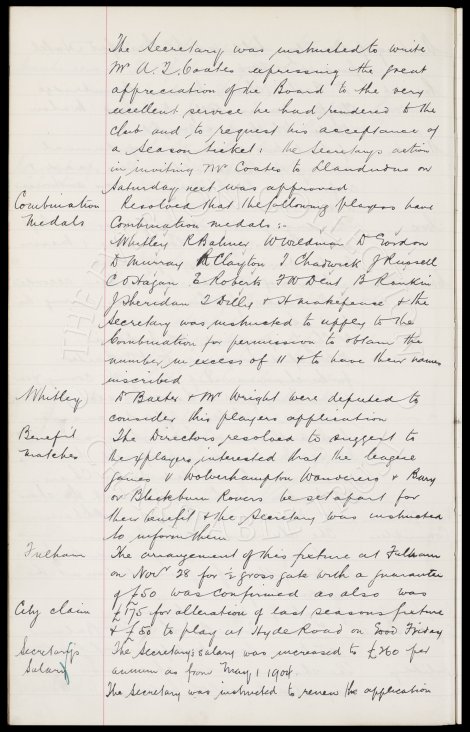 The Secretary was instructed to write
Mr A. T. Coates expressing the great
appreciation of the Board to the very
excellent service he had rendered to the
club and to request his acceptance of
a Season ticket: the Secretary's action
in inviting Mr Coates to Llandudno on
Saturday next was approved
Combination Medals
Resolved that the following players have
Combination medals:-
Whitley R Balmer W Wildman D Gordon
D Murray A Clayton T Chadwick J Russell
C O'Hagan E Roberts F W Dent, B Rankin
J Sheridan T Dilly & H Makepeace & the
Secretary was instructed to apply to the
Combination for permission to obtain the
number in excess of 11 & to have their names
inscribed
Whitley
Dr Baxter & Mr Wright were deputed to
consider this players application
Benefit Matches
The Directors resolved to suggest to
the players interested that the league
games v Wolverhampton Wanderers & Bury
or Blackburn Rovers be set apart for
their benefit & the Secretary was instructed
to inform them
Fulham
The arrangement of this fixture at Fulham
on Novr 28 for ½ gross gate with a guarantee
of £50 was confirmed as also was
City claim
£175 for alteration of last seasons fixture
& £50 to play at Hyde Road on Good Friday
Secretary's Salary
The Secretary's salary was increased to £260 per
annum as from May 1 1904
The Secretary was instructed to renew the application